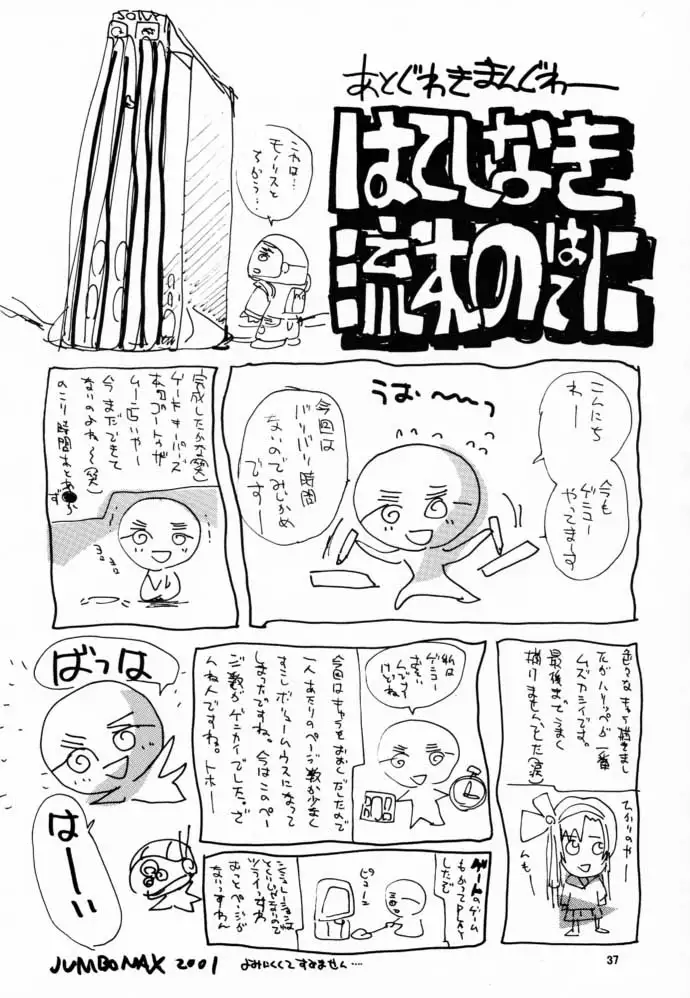 あとぐわきまんぐわー
はてしなき
流木のはてに
これは…
モノリスと
ちがう…
こんにち
わー
今も
ゲミュー
やってまーす
うおー〜っ
今回は
バリバリ時間
ないのでみじかめ
でーす
完成したかな(笑)
ゲートキーパーズ
今まだできて
ないのよね〜(笑)
のこり時間あとわ
ず
ヨロヨロ
色々なキャラ描きまし
たがハリッペが一番
ムズカシイです。
最後までうまく
描けませんでした(涙)
私は
ゲミュー
おそい
んです
けどね
今回はキャラをおおくだしたので
一人あたりのページ数が少なく
すこしボリュームウスになって
しまったですね。今はこのペー
ジ数がゲンカイでした。で
んねんですね。トホー
ばっは
はーい
ゲートのゲーム
もかってPLAY
しただ
ピューン
シミュレーションは
とくいじゃないので
ツライっすね
もっとページが
ないっすねん
JUMBOMAX 2001
よみにくくてすみません….
37